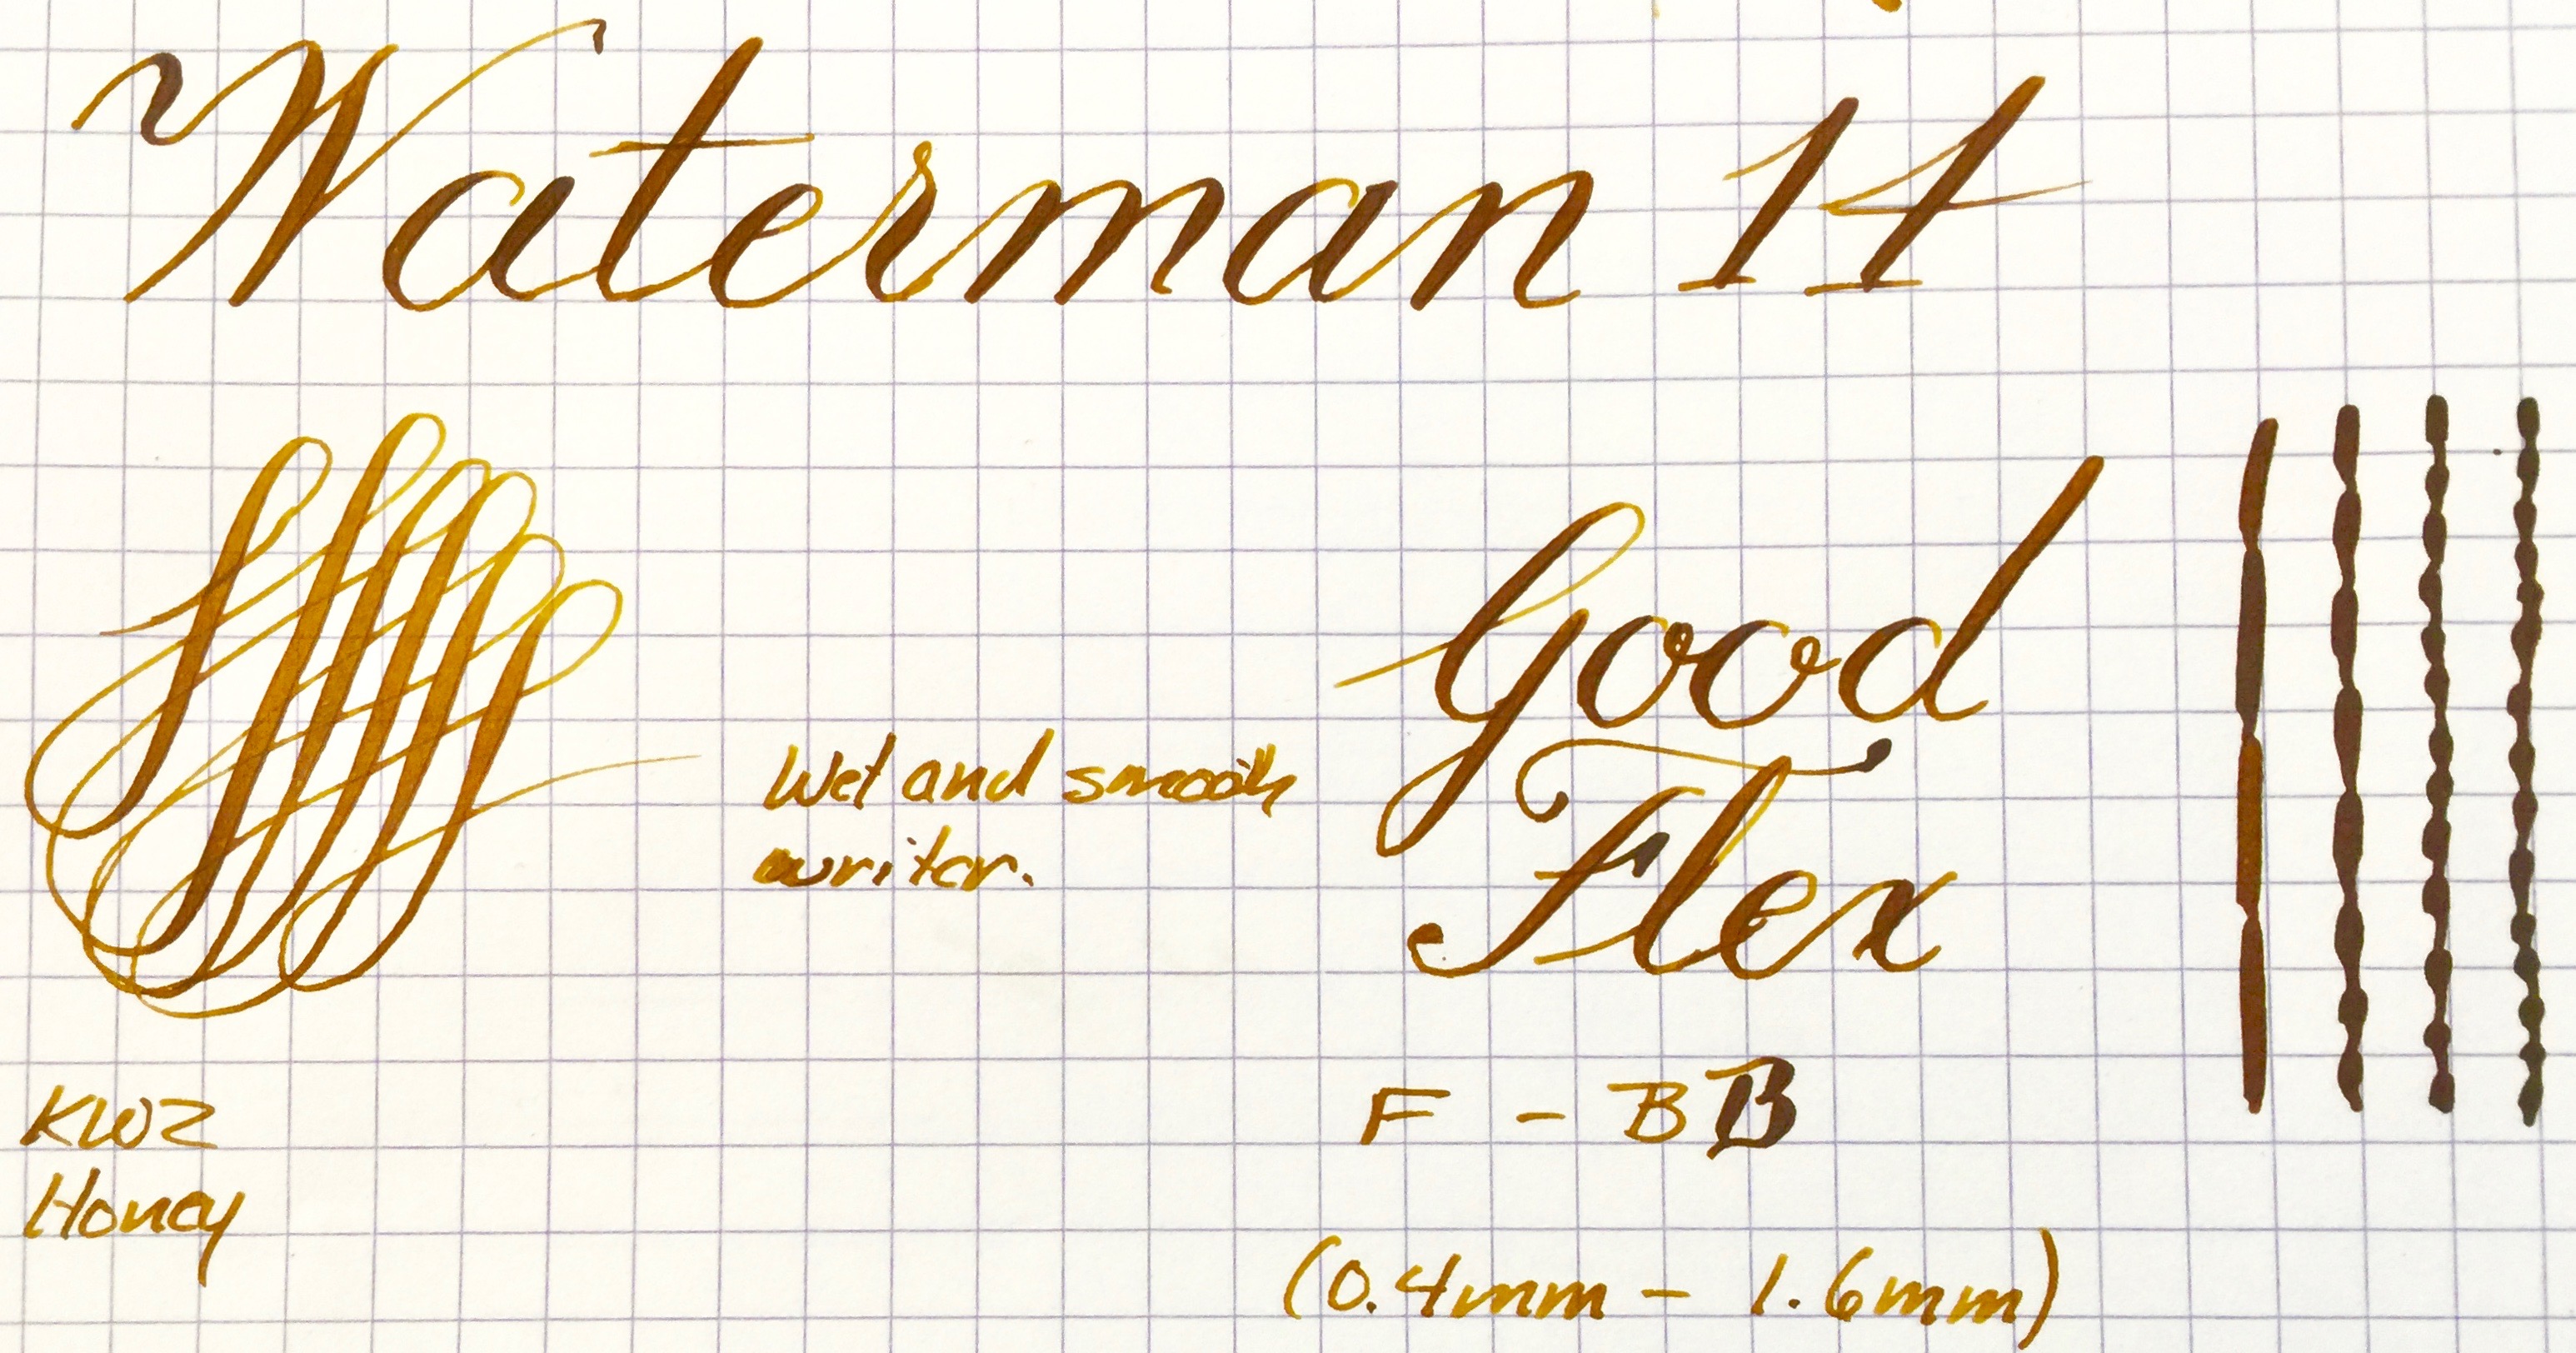 Waterman 14
Good
Flex
Wet and smooth
writer.
F - BB
KWZ
Honey
(0.4mm - 1.6mm)